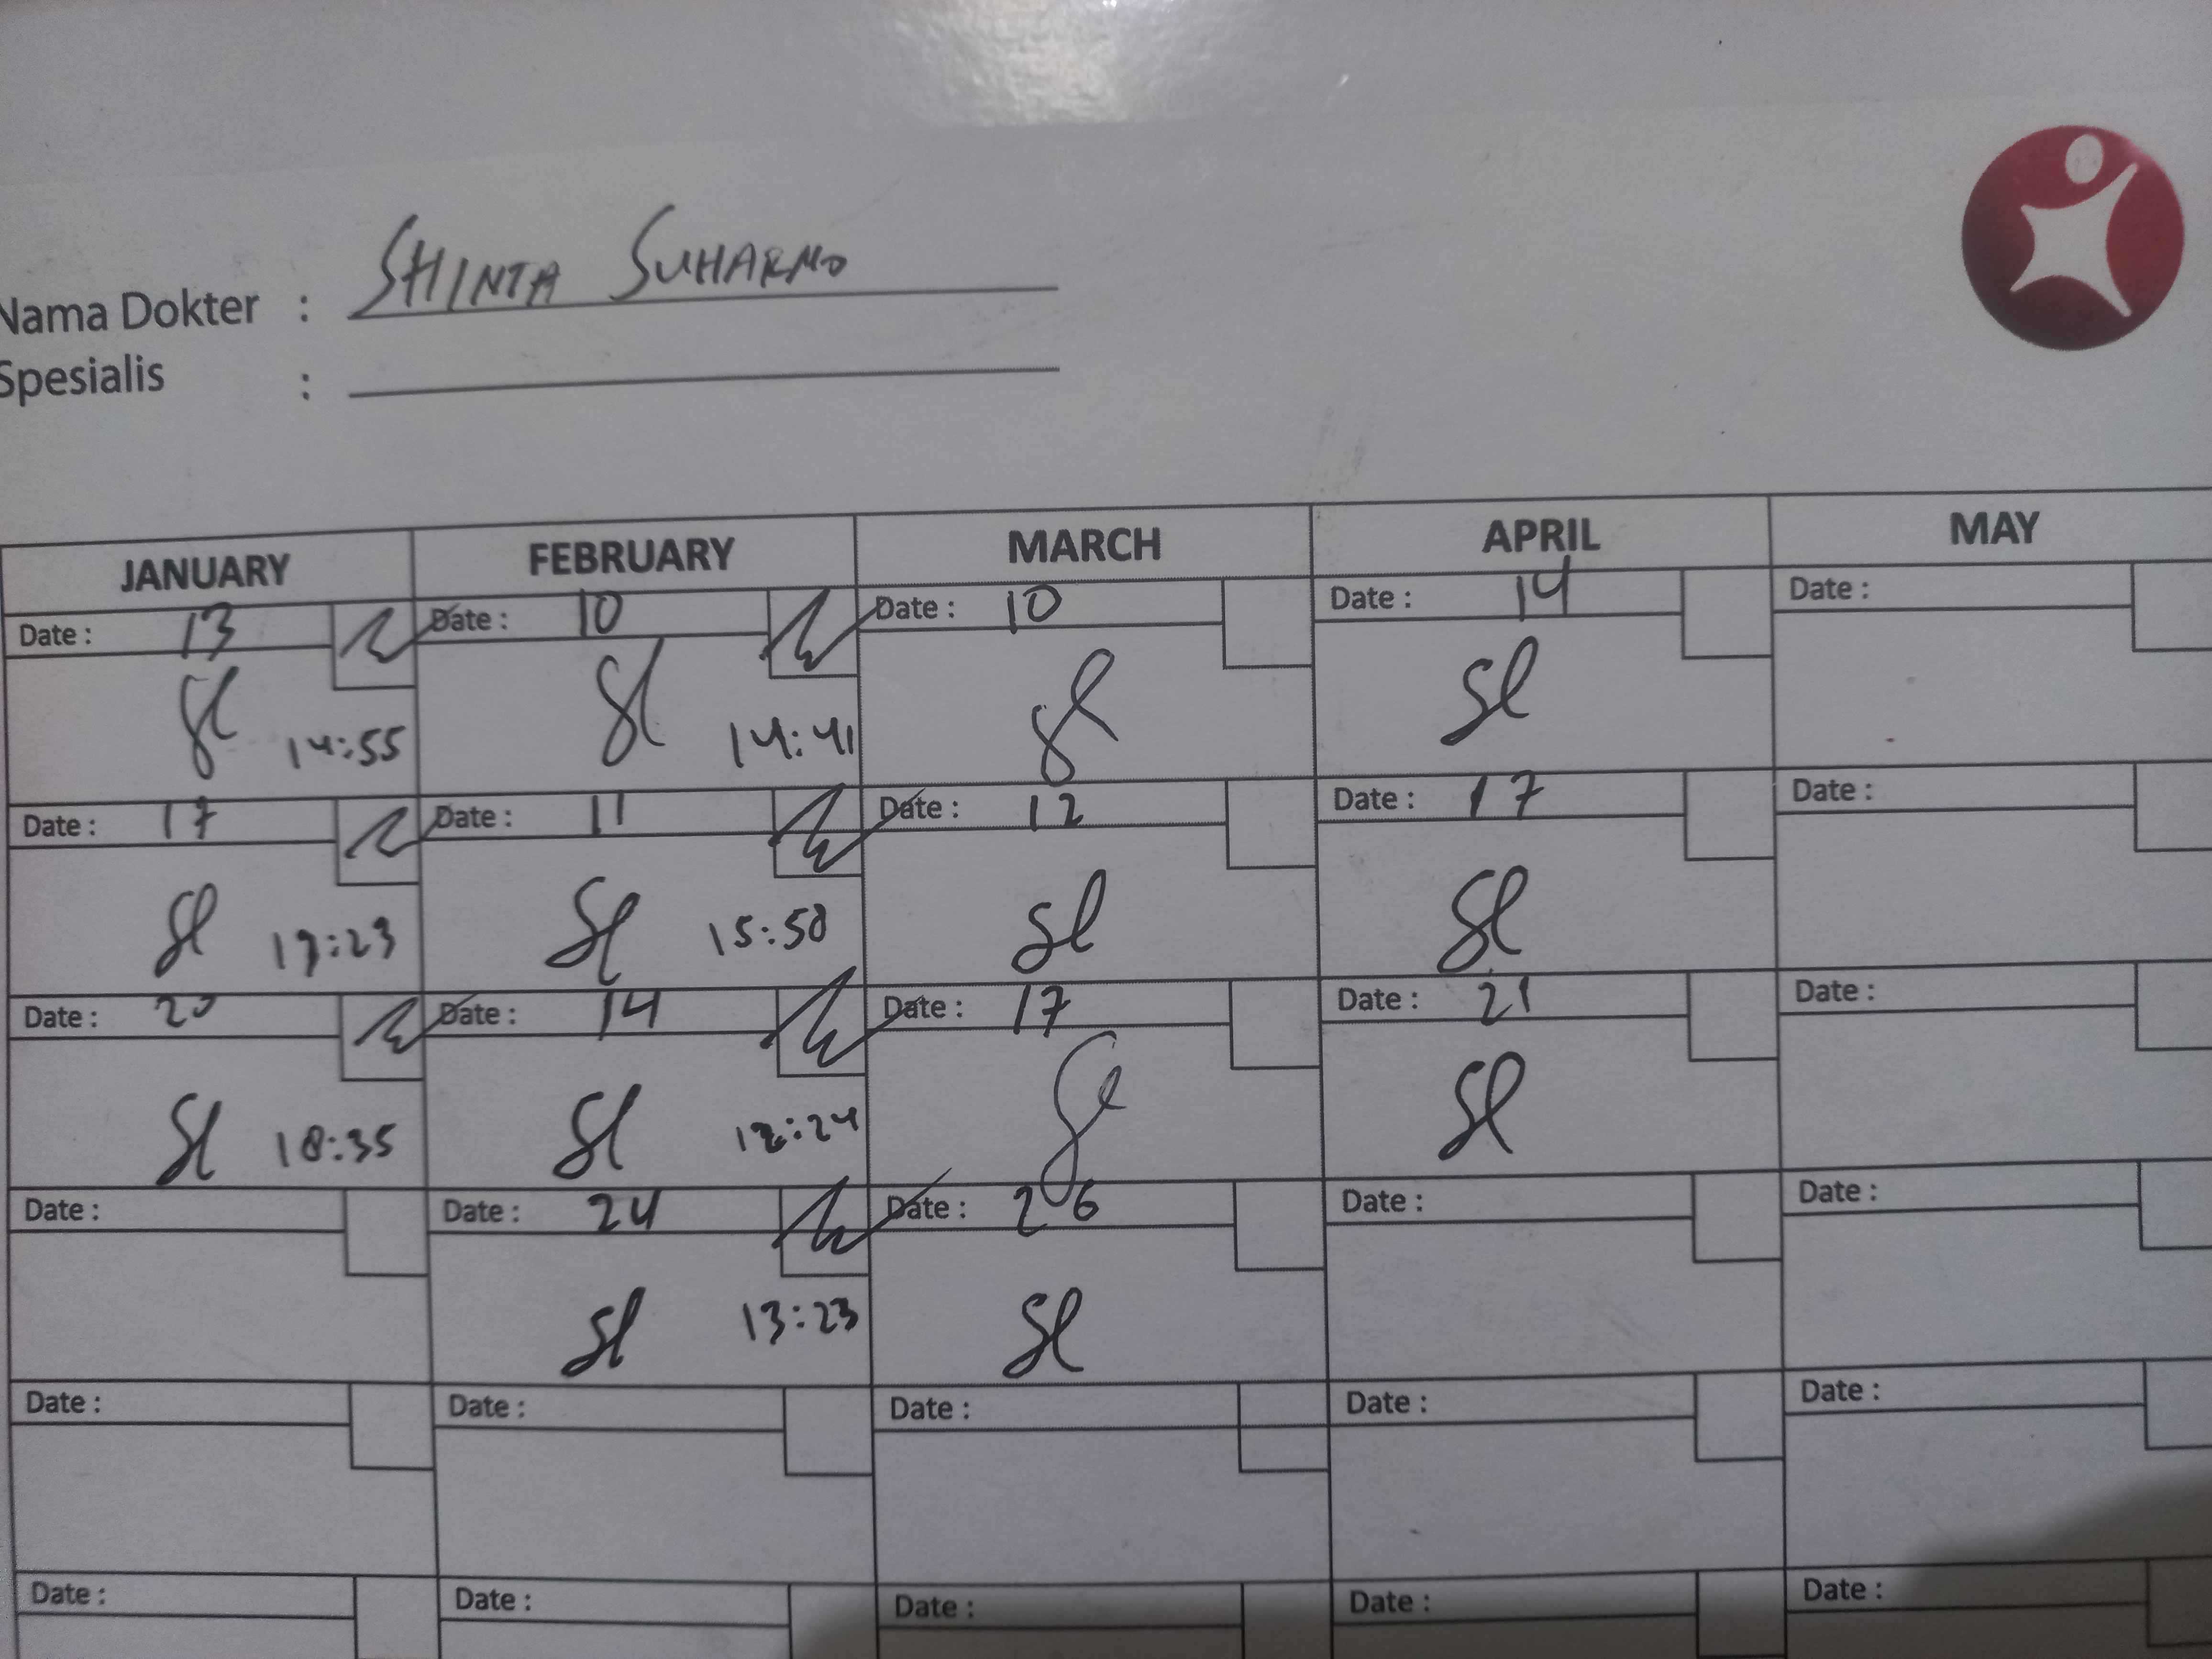 Nama Dokter : SHINTA SUHARNO
Spesialis :
JANUARY FEBRUARY MARCH APRIL MAY
Date : 13 Date : 10 Date : 10 Date : 14 Date :
14:55 14:41
Date : 17 Date : 11 Date : 12 Date : 17 Date :
15:50
Date : 20 Date : 14 Date : 17 Date : 21 Date :
18:35 12:24
Date : Date : 24 Date : 26 Date : Date :
13:23
Date : Date : Date : Date : Date :
Date : Date : Date : Date : Date :